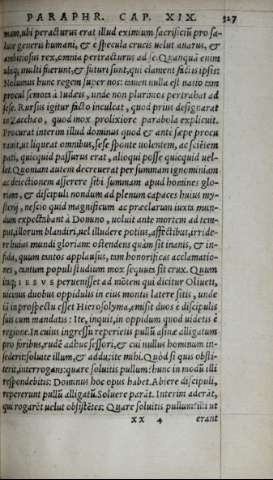 PARAPHR. CAP. XIX. 327
mam, ubi peracturus erat illud eximium sacrificiũ pro sa-
lute generis humani, & e specula crucis uelut auarus, &
ambitiosus rex, omnia pertracturus ad se. Quanquã enim
multi fuerunt, & futuri sunt, qui clament fidei ipsius
Nolumus hunc regem super nos: tamen nulla est natio tam
procul semota à Iudæis, unde non plurimos pertrahat ad
sese. Rursus igitur facto inculcat, quod prius designarat
in Zacchæo, quod mox prolixiore parabola explicuit.
Procurat interim illud dominus quod & ante sæpe procu
rauit, ut liqueat omnibus, sese sponte uolentem, ac sciẽtem
pati, quicquid passurus erat, alioqui posse quicquid uel-
let. Quoniam autem decreuerat per summam ignominiam
ac deiectionem asserere sibi summam apud homines glo-
riam, & discipuli nondum ad plenum capaces huius my-
sterij, nescio quid magnificum ac præclarum iuxta mun-
dum expectabant à Domino, uoluit ante mortem ad tem-
pus, illorum blandiri, uel illudere potius, affectibus, irride-
re huius mundi gloriam: ostendens quàm sit inanis, & in-
fida, quam tantos applausus, tam honorificas acclamatio-
nes, tantum populi studium mox sequutura sit crux. Quum
itaque IESVS peruenisset ad montem qui dicitur Oliueti,
uicinus duobus oppidulis in eius montis latere sitis, unde
iã in prospectu esset Hierosolyma, misit duos è discipulis
suis cum mandatis: Ite, inquit, in oppidum quod uidetis è
regione. In cuius ingressu reperietis pullũ asinæ alligatum
pro foribus, rudẽ adhuc sessori, & cui nullus hominum in-
sederit: soluite illum, & adducite mihi. Quòd si quis obsti-
terit, interrogans: quare soluitis pullum? hunc in modũ illi
respondebitis: Dominus hoc opus habet. Abiere discipuli,
repererunt pullũ alligatũ. Soluere parãt. Interim aderãt,
qui rogarẽt uelut obsistẽtes: Quare soluitis pullum? illi ut
XX 4 erant